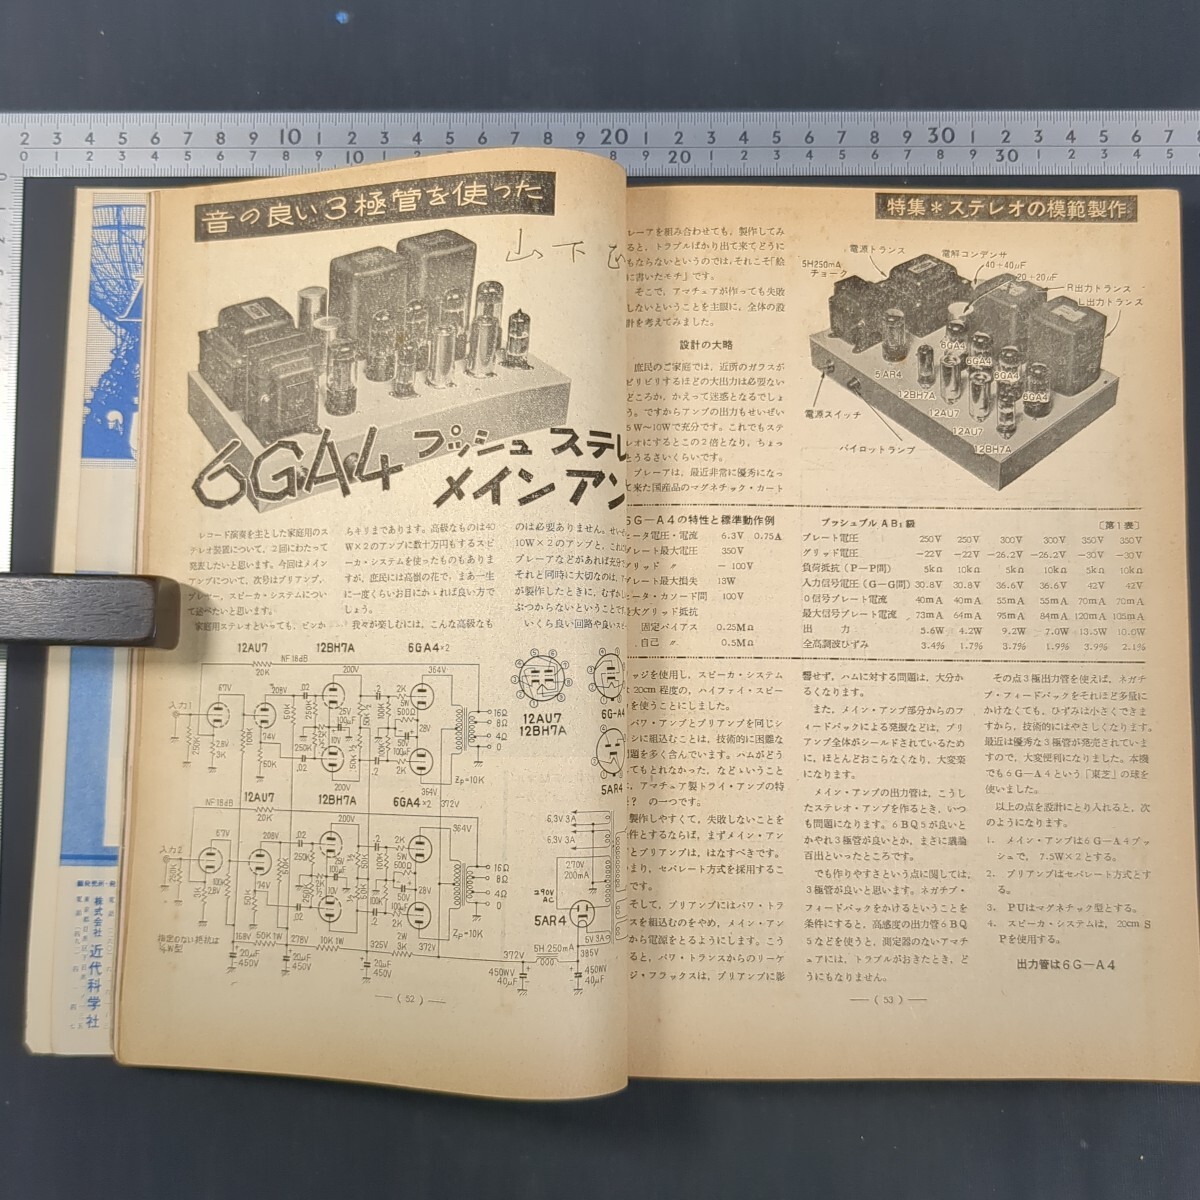 音の良い3極管を使った
山下
6GA4 プッシュ ステレ
メイン アン
レコード演奏を主とした家庭用のス
テレオ装置について、2回にわたって
発表したいと思います。今回はメイン
アンプについて、次号はプリアンプ、
プレヤー、スピーカ・システムについ
て述べたいと思います。
家庭用ステレオといっても、ピンか
らキリまであります。高級なものは40
W×2のアンプに数十万円もするスピ
ーカ・システムを使ったものもありま
すが、庶民には高嶺の花で、まあ一生
に一度くらいお目にかゝれば良い方で
しょう。
我々が楽しむには、こんな高級なも
のは必要ありません。せい
10W×2のアンプと、これ
プレーアなどがあれば充分
それと同時に大切なのは、
が製作したときに、むずか
ぶつからないということで
いくら良い回路や良いス
12AU7 12BH7A 6GA4×2
NF 18dB
20K
67V
208V
74V
200V
364V
入力1
16Ω
8Ω
4Ω
0
Zp=10K
12AU7
12BH7A
6G-A4
5AR4
NF 18dB
12AU7 12BH7A 6GA4×2
372V
364V
入力2
16Ω
8Ω
4Ω
0
Zp=10K
指定のない抵抗は
½W型
168V 50K 1W 278V 10K 1W 325V 3K 2W 372V
20μF 450V
20μF 450V
20μF 450V
6.3V 3A
6.3V 3A
270V 200mA
290V AC
5AR4
5V 3A
385V
5H 250mA
372V
450WV 40μF
450WV 40μF
—(52)—
特集＊ステレオの模範製作
レーアを組み合わせても、製作してみ
ると、トラブルばかり出て来てどうに
もならないというのでは、それこそ「絵
に書いたモチ」です。
そこで、アマチュアが作っても失敗
しないということを主眼に、全体の設
計を考えてみました。
設計の大略
庶民のご家庭では、近所のガラスが
ビリビリするほどの大出力は必要ない
どころか、かえって迷惑となるでしょ
う。ですからアンプの出力もせいぜい
5W〜10Wで充分です。これでもステ
レオにするとこの2倍となり、ちょっ
とうるさいくらいです。
プレーアは、最近非常に優秀になっ
て来た国産品のマグネチック・カート
電源トランス
5H250mA
チョーク
電解コンデンサ
40+40μF
20+20μF
R出力トランス
L出力トランス
6GA4
6GA4
6GA4
6GA4
5AR4
12BH7A
12AU7
12AU7
12BH7A
電源スイッチ
パイロットランプ
6G—A4の特性と標準動作例
ヒータ電圧・電流 6.3V 0.75A
プレート最大電圧 350V
グリッド 〃 －100V
プレート最大損失 13W
ヒータ・カソード間 100V
最大グリッド抵抗
固定バイアス 0.25MΩ
自己 〃 0.5MΩ
プッシュプルAB₁級 〔第1表〕
プレート電圧 250V 250V 300V 300V 350V 350V
グリッド電圧 －22V －22V －26.2V －26.2V －30V －30V
負荷抵抗（P－P間） 5kΩ 10kΩ 5kΩ 10kΩ 5kΩ 10kΩ
入力信号電圧（G－G間） 30.8V 30.8V 36.6V 36.6V 42V 42V
0信号プレート電流 40mA 40mA 55mA 55mA 70mA 70mA
最大信号プレート電流 73mA 64mA 95mA 84mA 120mA 105mA
出力 5.6W 4.2W 9.2W 7.0W 13.5W 10.0W
全高調波ひずみ 3.4% 1.7% 3.7% 1.9% 3.9% 2.1%
ッジを使用し、スピーカ・システム
は20cm程度の、ハイファイ・スピー
を使うことにしました。
パワ・アンプとプリアンプを同じシ
シに組込むことは、技術的に困難な
問題を多く含んでいます。ハムがどう
てもとれなかった、などいうこと
は、アマチュア製トライ・アンプの特
？の一つです。
製作しやすくて、失敗しないことを
件とするならば、まずメイン・アン
とプリアンプは、はなすべきです。
まり、セパレート方式を採用するこ
です。
そして、プリアンプにはパワ・トラ
スを組込むのをやめ、メイン・アン
から電源をとるようにします。こう
ると、パワ・トランスからのリーケ
ジ・フラックスは、プリアンプに影
響せず、ハムに対する問題は、大分か
るくなります。
また、メイン・アンプ部分からのフ
ィードバックによる発振などは、プリ
アンプ全体がシールドされているため
に、ほとんどおこらなくなり、大変楽
になります。
メイン・アンプの出力管は、こうし
たステレオ・アンプを作るとき、いつ
も問題になります。6BQ5が良いと
かやれ3極管が良いとか、まさに議論
百出といったところです。
でも作りやすさという点に関しては、
3極管が良いと思います。ネガチブ・
フィードバックをかけるということを
条件にすると、高感度の出力管6BQ
5などを使うと、測定器のないアマチ
ュアには、トラブルがおきたとき、ど
うにもなりません。
その点3極出力管を使えば、ネガチ
ブ・フィードバックをそれほど多量に
かけなくても、ひずみは小さくできま
すから、技術的にはやさしくなります。
最近は優秀な3極管が発売されていま
すので、大変便利になりました。本機
でも6G－A4という「東芝」の球を
使いました。
以上の点を設計にとり入れると、次
のようになります。
1. メイン・アンプは6G－A4プッ
シュで、7.5W×2とする。
2. プリアンプはセパレート方式とす
る。
3. PUはマグネチック型とする。
4. スピーカ・システムは、20cm S
Pを使用する。
出力管は6G－A4
—(53)—
株式会社 近代科学社